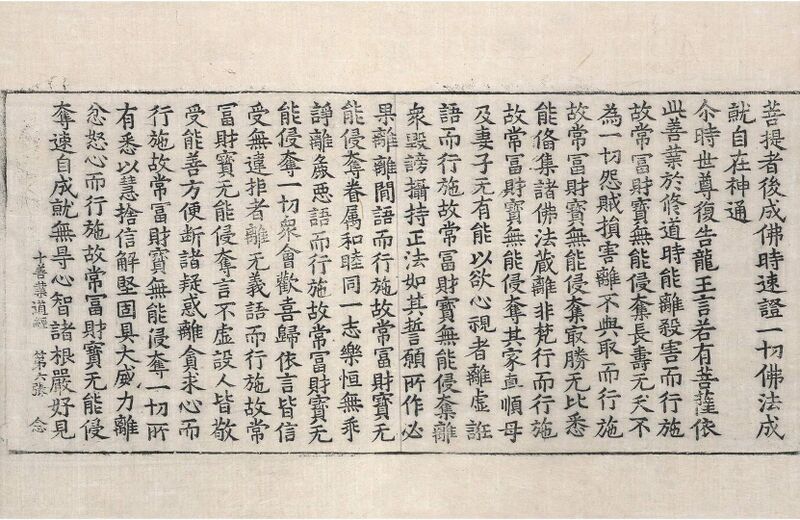 菩提者後成佛時速證一切佛法成
就自在神通
尒時世尊復告龍王言若有菩薩依
此善業於修道時能離殺害而行施
故常冨財寶無能侵奪長壽无夭不
為一切怨賊損害離不與取而行施
故常冨財寶無能侵奪㝡勝无比悉
能俻集諸佛法蔵離非梵行而行施
故常冨財寶無能侵奪其家直順母
及妻子无有能以欲心視者離虛誑
語而行施故常冨財寶無能侵奪離
衆毀謗攝持正法如其誓願所作必
果離離間語而行施故常冨財寶无
能侵奪眷属和睦同一志樂恒無乖
諍離麁悪語而行施故常冨財寶无
能侵奪一切衆會歡喜歸依言皆信
受無違拒者離无義語而行施故常
冨財寶无能侵奪言不虛設人皆敬
受能善方便断諸疑惑離貪求心而
行施故常冨財寶無能侵奪一切所
有悉以慧捨信解堅固具大威力離
忿怒心而行施故常冨財寶无能侵
奪速自成就無㝵心智諸根嚴好見
十善業道經 第六張 念